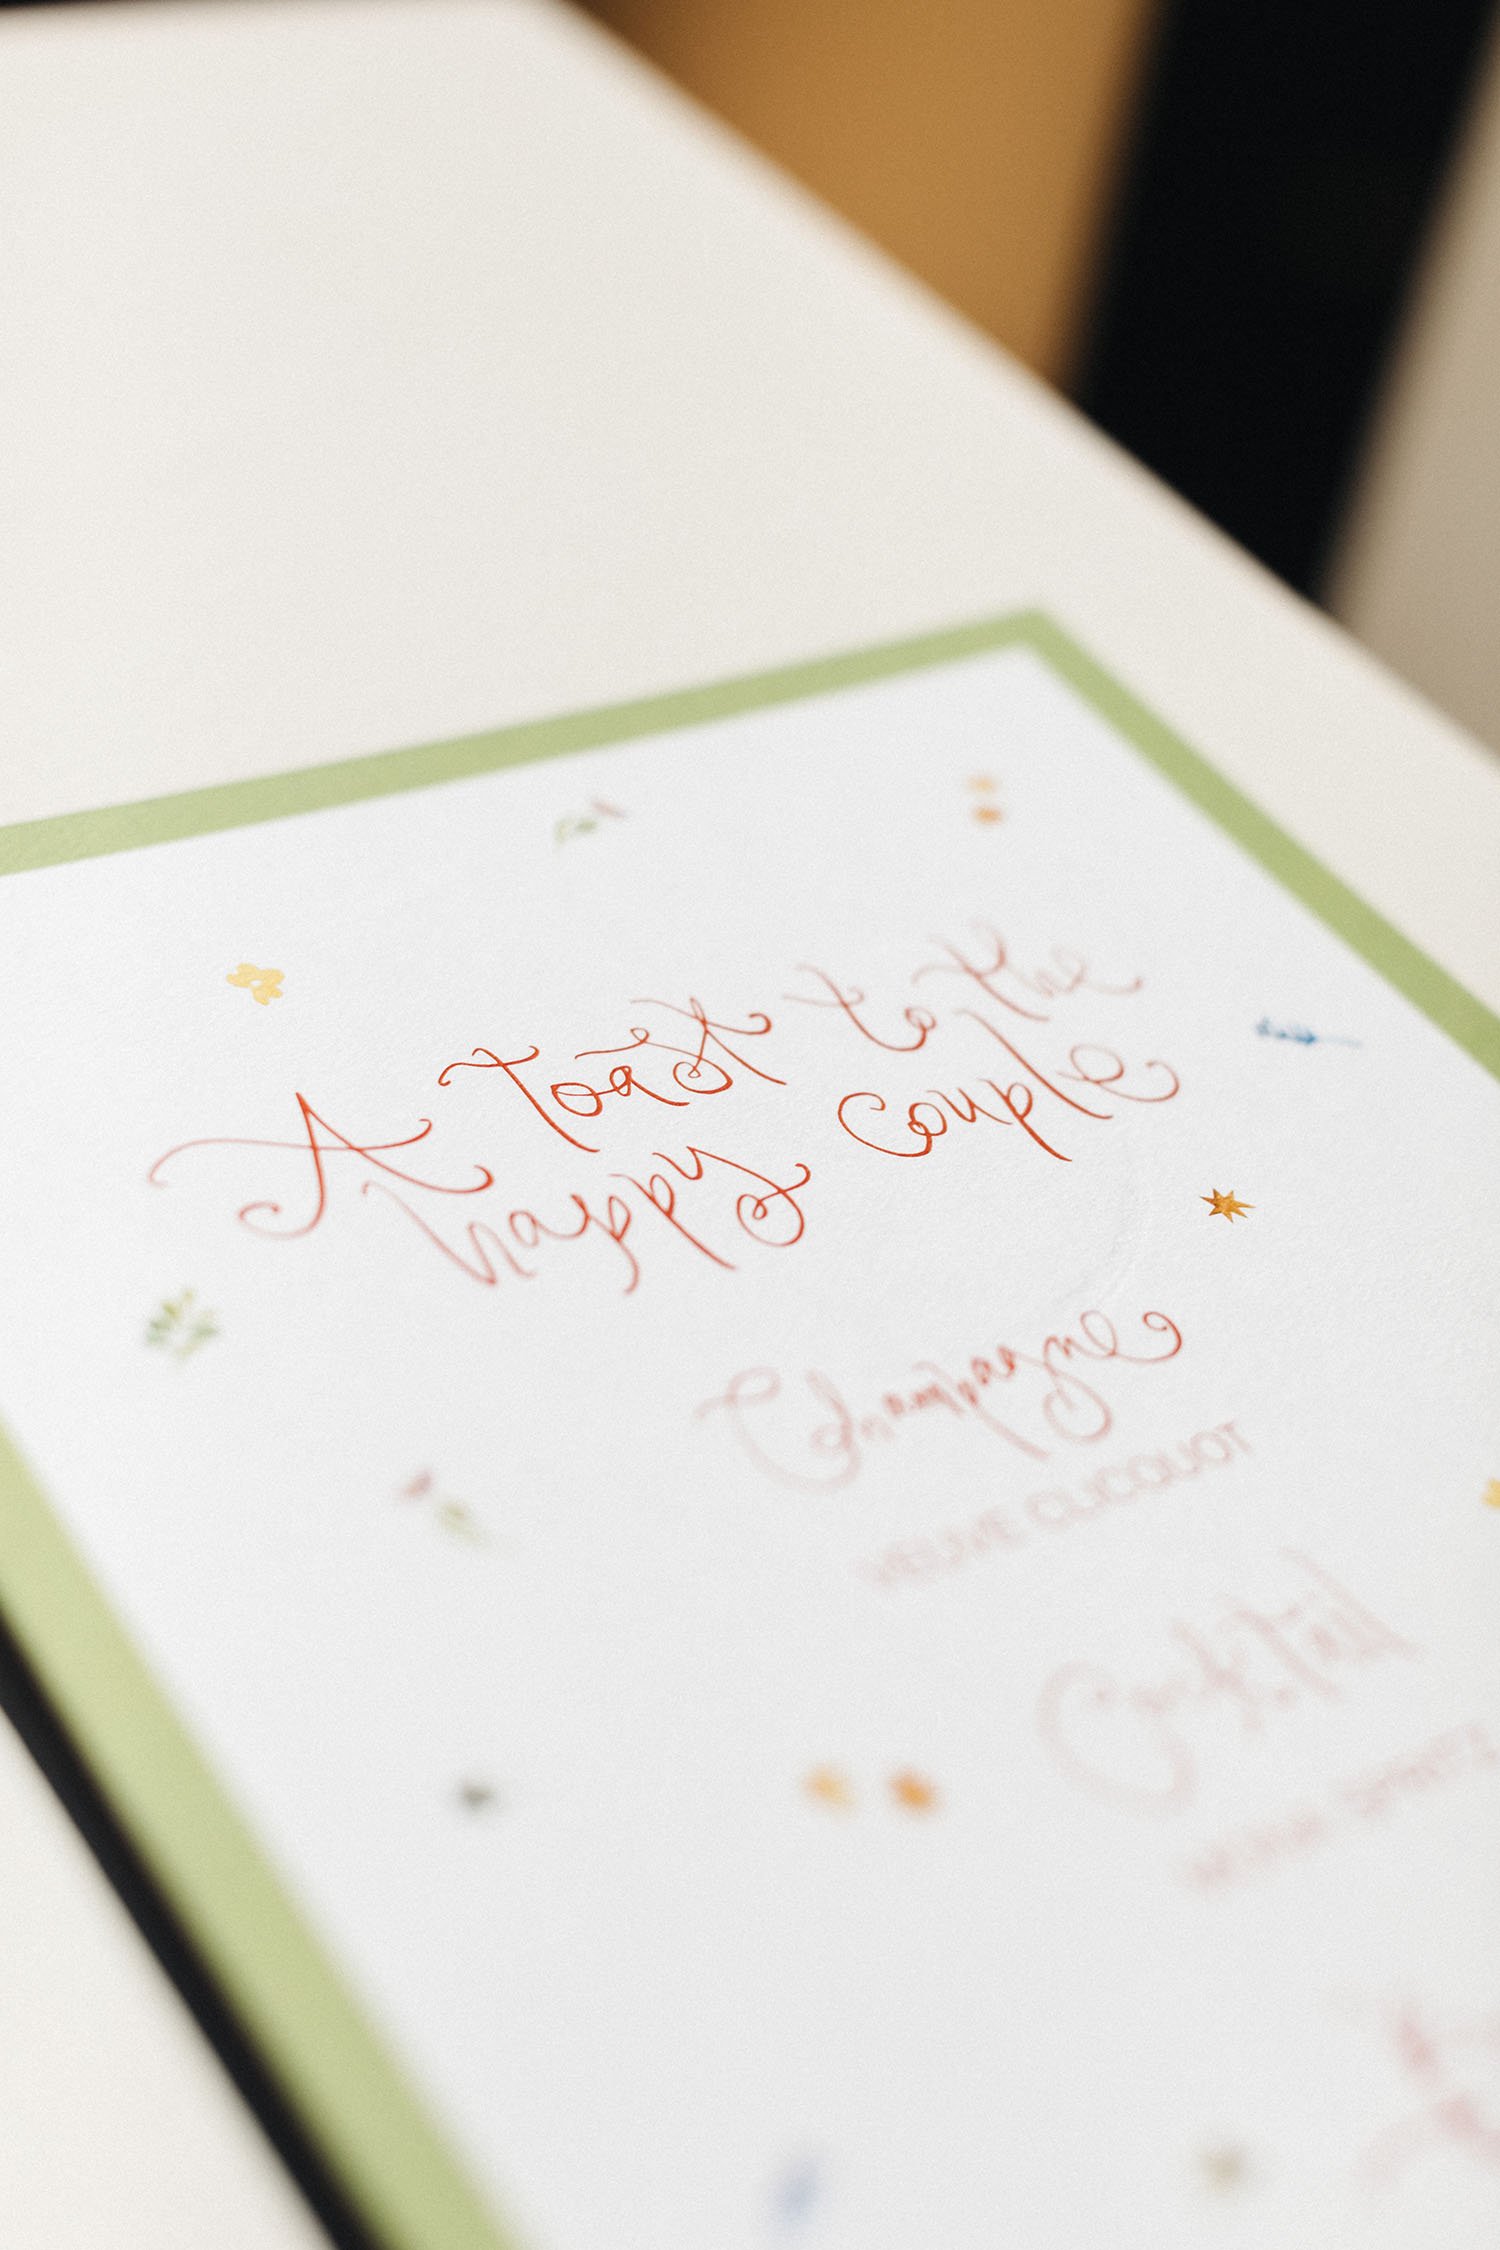 A toast to the
happy couple
Champagne
VEUVE CLICQUOT
Cocktail